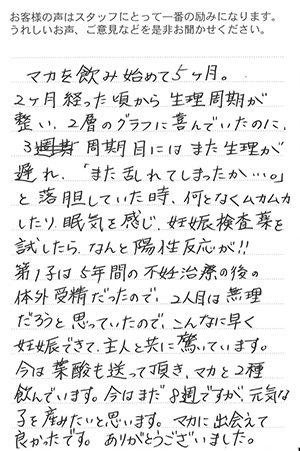 お客様の声はスタッフにとって一番の励みになります。
うれしいお声、ご意見などを是非お聞かせください。
マカを飲み始めて5ヶ月。
2ヶ月経った頃から生理周期が
整い、2層のグラフに喜んでいたのに、
3周期目にはまた生理が
遅れ、「また乱れてしまったか…。」
と落胆していた時、何となくムカムカ
したり眠気を感じ、妊娠検査薬を
試したら、なんと陽性反応が!!
第1子は5年間の不妊治療の後の
体外受精だったので、2人目は無理
だろうと思っていたので、こんなに早く
妊娠できて、主人と共に驚いています。
今は葉酸も送って頂き、マカと2種
飲んでいます。今はまだ8週ですが、元気な
子を産みたいと思います。マカに出会えて
良かったです。ありがとうございました。